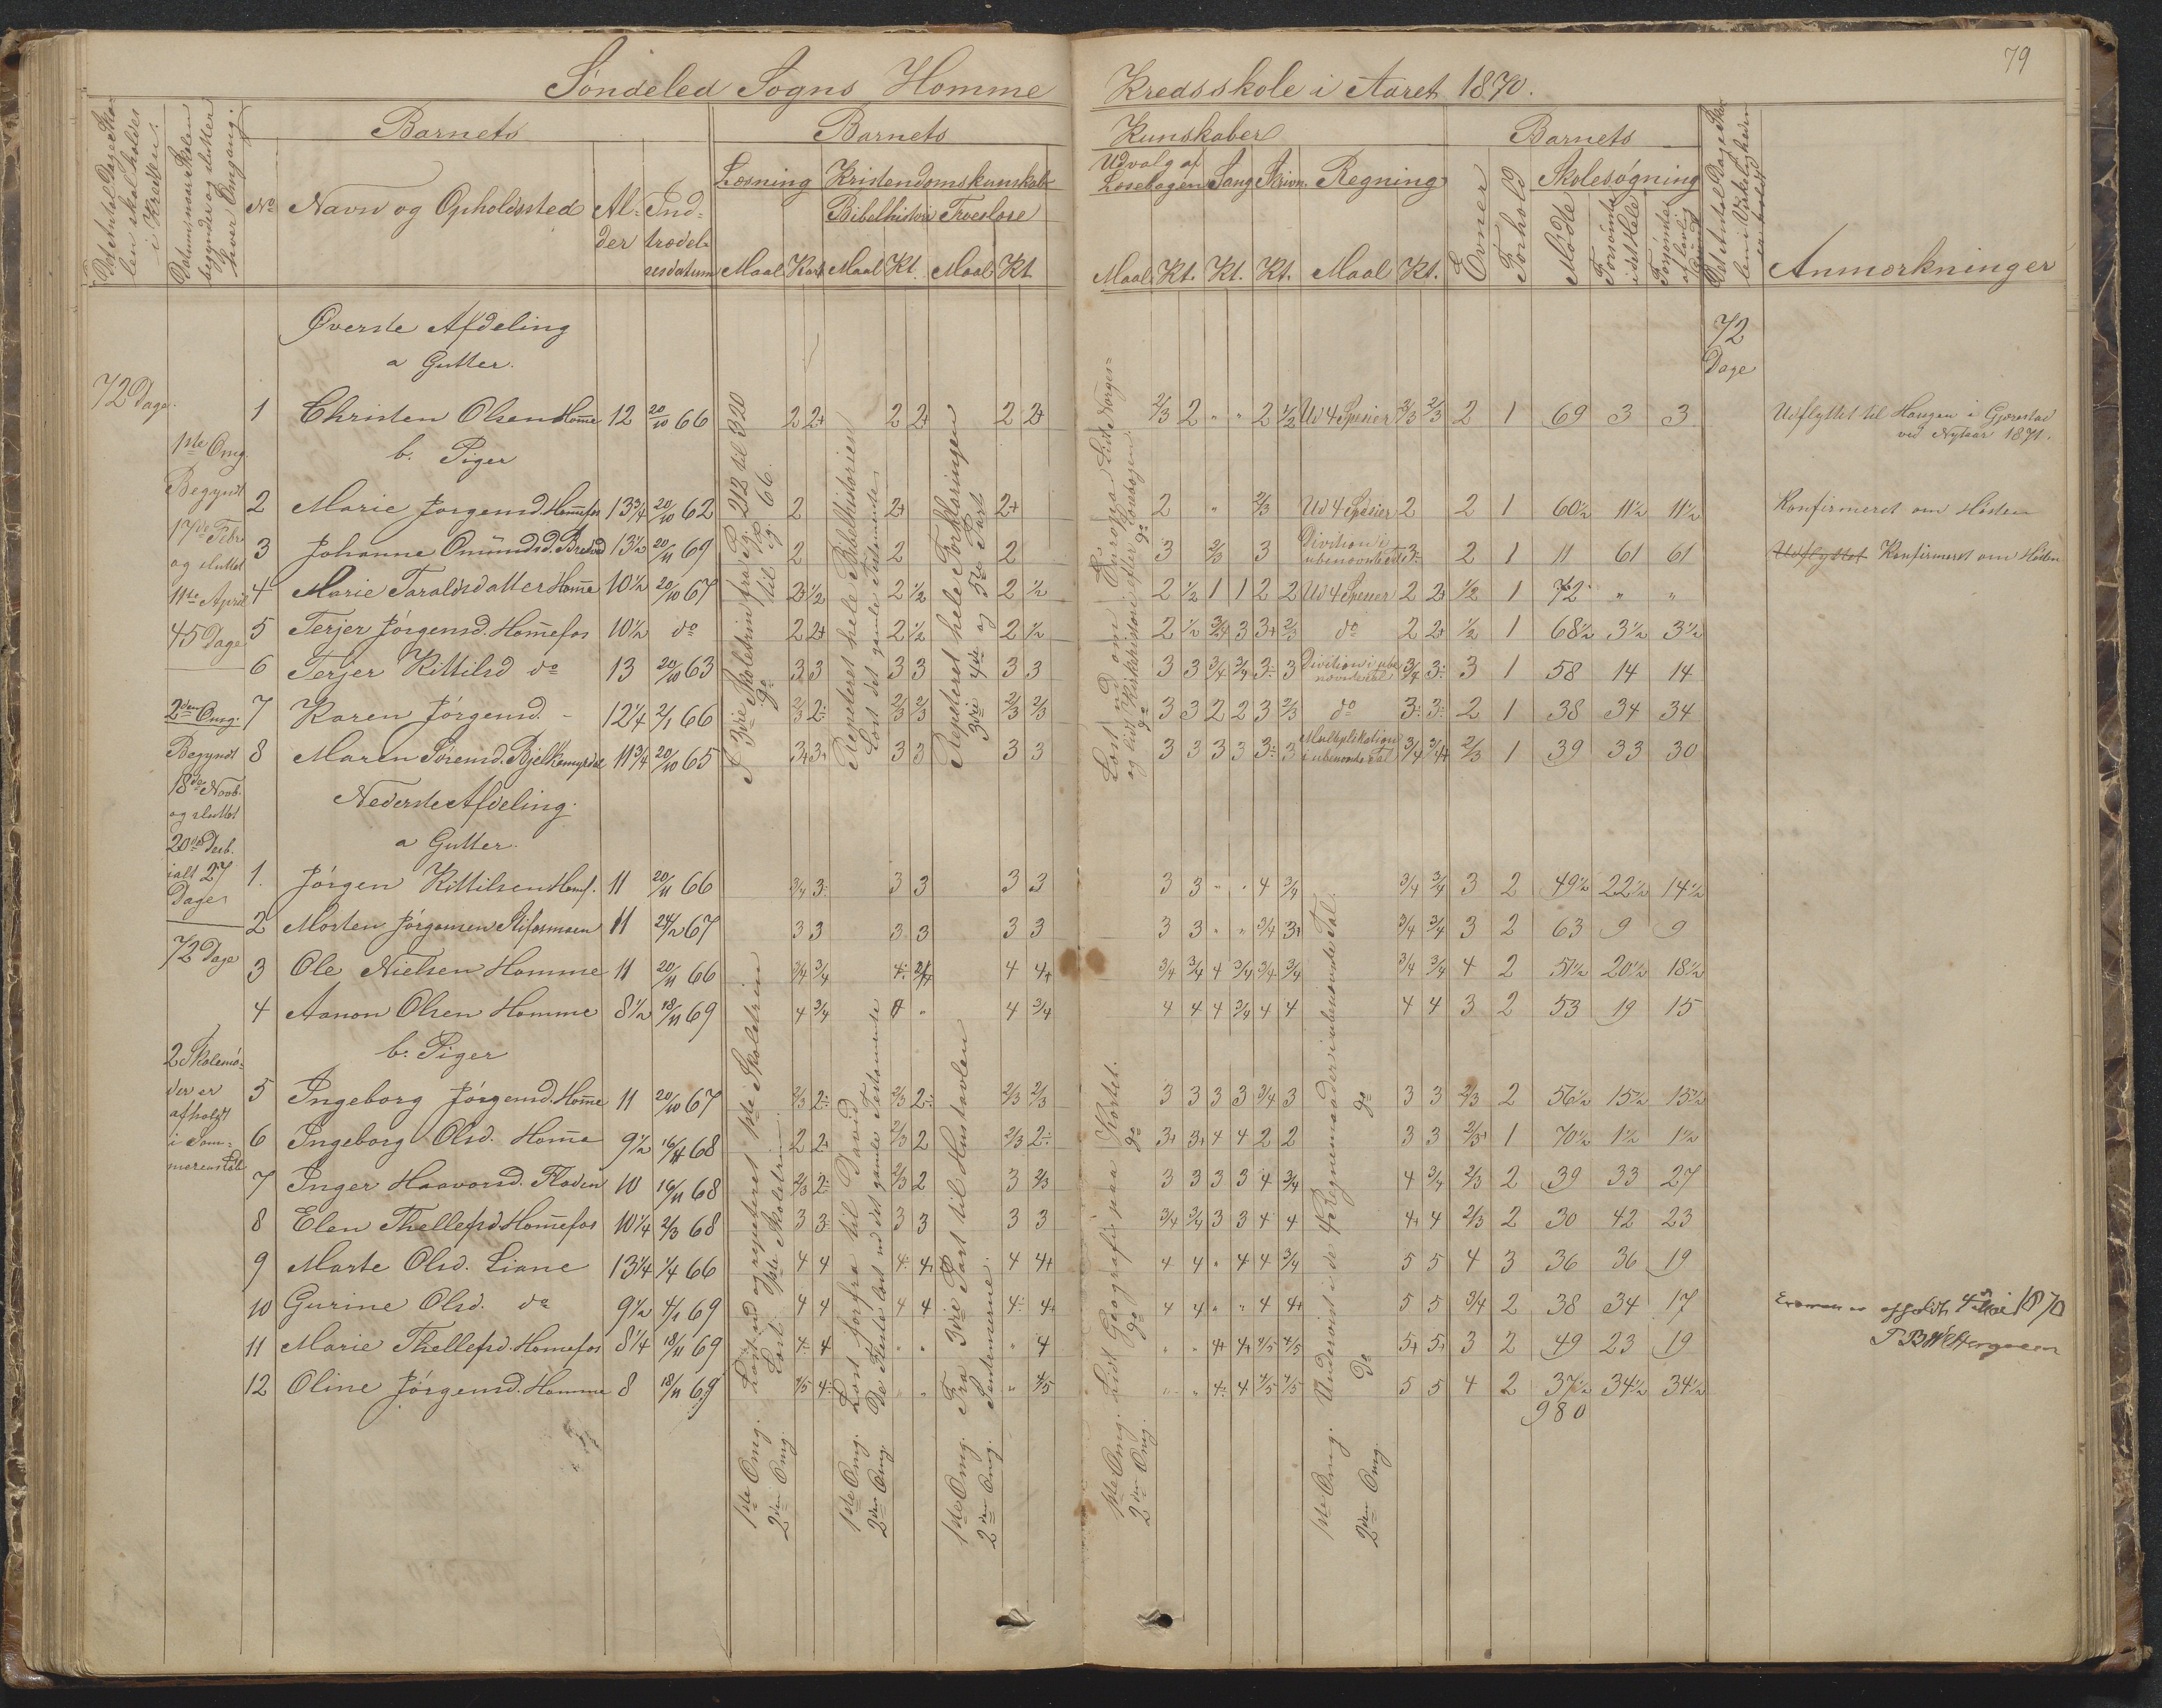 79
Søndeled Sogns Homme Kredsskole i Aaret 1870.
Det Antal Dage Skolen skal holdes i Kredsen.
Datum, naar Skolen begynder og slutter hver Omgang.
No
Barnets
Navn og Opholdssted
Al-der
Ind-trædel-sesdatum
Barnets
Læsning
Kristendomskunskab
Bibelhistori
Troeslære
Maal Kart. Maal Kt. Maal Kt.
Kunskaber
Udvalg af Læsebogen
Sang
Skrivn.
Regning
Maal Kt. Kt. Kt. Maal Kt.
Barnets
Evner
Forhold
Skolesøgning
Mødte
Forsømte i det Hele
Forsømte af lovlig Grund
Det Antal Dage Skolen i Virkeligheden er holdt
Anmærkninger
Øverste Afdeling
a Gutter.
72 Dage
72 Dage.
1 Christen Olsen Home 12 20/10 66 2 2+ 2 2+ 2 2+ 2/3 2 " " 2 1/2 Ud 4 Spesier 2/3 2/3 2 1 69 3 3 Udflyttet til Haugen i Gjerestad
ved Nytaar 1871.
b. Piger
2 Marie Jørgensd. Homefos 13 3/4 20/10 62 2 2+ 2+ 2 " 2/3 Ud 4 Spesier 2 2 1 60½ 11½ 11½ Konfirmeret om Høsten
3 Johanne Omundsd. 13½ 20/11 69 2 2 2 3 2/3 3 Division i ubenævnte 3÷ 2 1 11 61 61 Udflyttet Konfirmeret om Høsten
4 Marie Taraldsdatter Home 10½ 20/10 67 2 1/2 2 1/2 2 1/2 2 1/2 1 1 2 2 Ud 4 Spesier 2 2+ 1/2 1 72 " "
5 Terjer Jørgensd. Homefos 10½ do 2 2+ 2 1/2 2 1/2 2 1/2 3/4 3 3+ 2/3 do 2 2+ 1/2 1 68½ 3½ 3½
6 Terjer Kittilsd do 13 20/10 63 3 3 3 3 3 3 3 3 3/4 3/4 3÷ 3 Division i ubenævnte Tal 3/4 3÷ 3 1 58 14 14
7 Karen Jørgensd. - 12¼ 2/1 66 2/3 2÷ 2/3 2/3 2/3 2/3 3 3 2 2 3 2/3 do 3÷ 3÷ 2 1 38 34 34
8 Maren Sørensd. Bjelkemyrdal 11¾ 20/10 65 3+ 3+ 3 3 3 3 3 3 3 3 3÷ 3 Multiplikation i ubenævnte Tal 3/4 3/4+ 2/3 1 39 33 30
1ste Omg.
Begyndt
17de Febr
og sluttet
11te April
45 Dage
2den Omg.
Begyndt
18de Novb.
og sluttet
20de Desb.
ialt 27
Dage
72 Dage
2 Skolemø-
der er
afholdt
i Som-
merens Løb
I 3die Skoletrin fra Pg. 212 til 320
do til Pg. 66.
Repeteret hele Bibelhistorien
Læst det gamle Testamente
Repeteret hele Forklaringen
3die 4de og 5te Part
Læst ud om Europa Lidt Norges-
og lidt Kirkehistorie efter Læsebogen.
Nederste Afdeling.
a Gutter.
1. Jørgen Kittilsen Homf. 11 20/11 66 3/4 3÷ 3 3 3 3 3 3 " " 4 3/4 3/4 3/4 3 2 49½ 22½ 14½
2 Morten Jørgensen 11 24/2 67 3 3 3 3 3 3 3 3 " " 3/4 3+ 3/4 3/4 3 2 63 9 9
3 Ole Nielsen Homme 11 20/11 66 3/4 3/4 4÷ 4 4+ 3/4 3/4 4 3/4 3/4 3/4 3/4 3/4 4 2 51½ 20½ 18½
4 Aanon Olsen Homme 8½ 18/11 69 4 3/4 4 " 4 3/4 4 4 4 3/4 4 4 4 4 3 2 53 19 15
b. Piger
5 Ingeborg Jørgensd. Home 11 20/10 67 2/3 2÷ 2/3 2÷ 2/3 2/3 3 3 3 3 3/4 3 3 3 2/3 2 56½ 15½ 15½
6 Ingeborg Olsd. Home 9½ 16/11 68 2 2+ 2/3 2 2/3 2÷ 3+ 3+ 4 4 2 2 3 3 2/3+ 1 70½ 1½ 1½
7 Inger Haavorsd. Floden 10 16/11 68 2/3 2÷ 2/3 2 3 2/3 3 3 3 3 4 3/4 4 3/4 2/3 2 39 33 27
8 Elen Thellefsd Homefos 10¼ 2/3 68 3 3÷ 3 3 3 3 3/4 3/4 3 3 4 4 4+ 4 2/3 2 30 42 23
9 Marte Olsd. Liane 13¼ 4/4 66 4 4 4÷ 4+ 4 4+ 4 4 " 4 4 3/4 5 5 4 3 36 36 19
10 Gurine Olsd. do 9½ 4/1 69 4 4 4 4 4÷ 4+ 4 4 " " 4 4+ 5 5 3/4 2 38 34 17
11 Marie Thellefsd. Homefos 8¼ 18/11 69 4÷ 4 " " " 4 " " 4+ 4+ 4/5 4/5 5+ 5+ 3 2 49 23 19
12 Oline Jørgensd. Homme 8 18/11 69 4/5 4÷ " " " 4/5 " " 4÷ 4 4/5 4/5 5 5 4 2 37½ 34½ 34½
980
Examen er afholdt 4de Mai 1870
1ste Omg. Læst ud og repeteret 1ste Skoletrin
2den Omg. Læst 1ste Skoletrin.
1ste Omg. Læst forfra til David
2den Omg. De Fleste læst ud det gamle Testamente
1ste Omg. Fra 3die Part til Hustavlen
2den Omg. Sentenserne.
1ste Omg. Lidt Geografi paa Kortet.
2den Omg. do do
1ste Omg. Undervist i de 4 Regnemaader i ubenævnte Tal.
2den Omg. do do